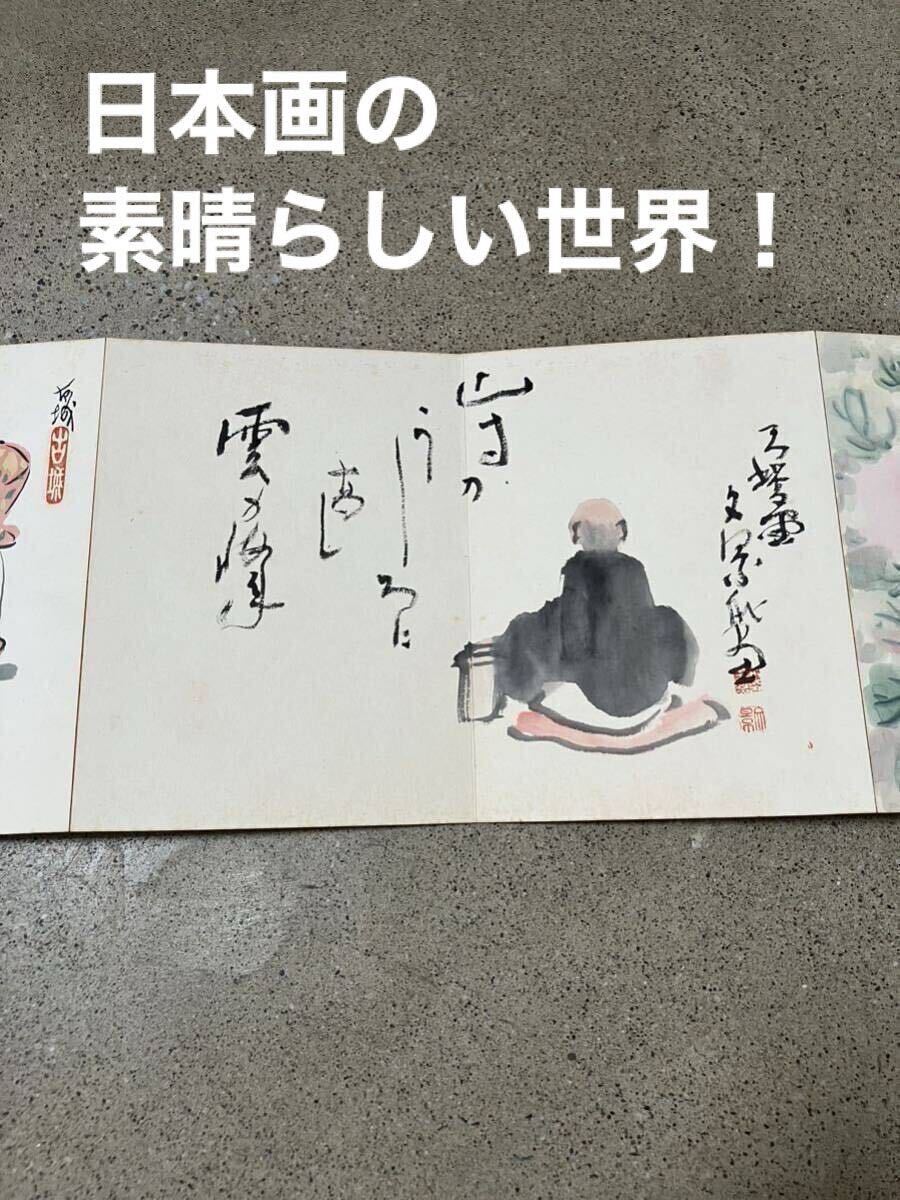 日本画の
素晴らしい世界！
山寺の
うしろに
高し
雲の峰
古城
古城